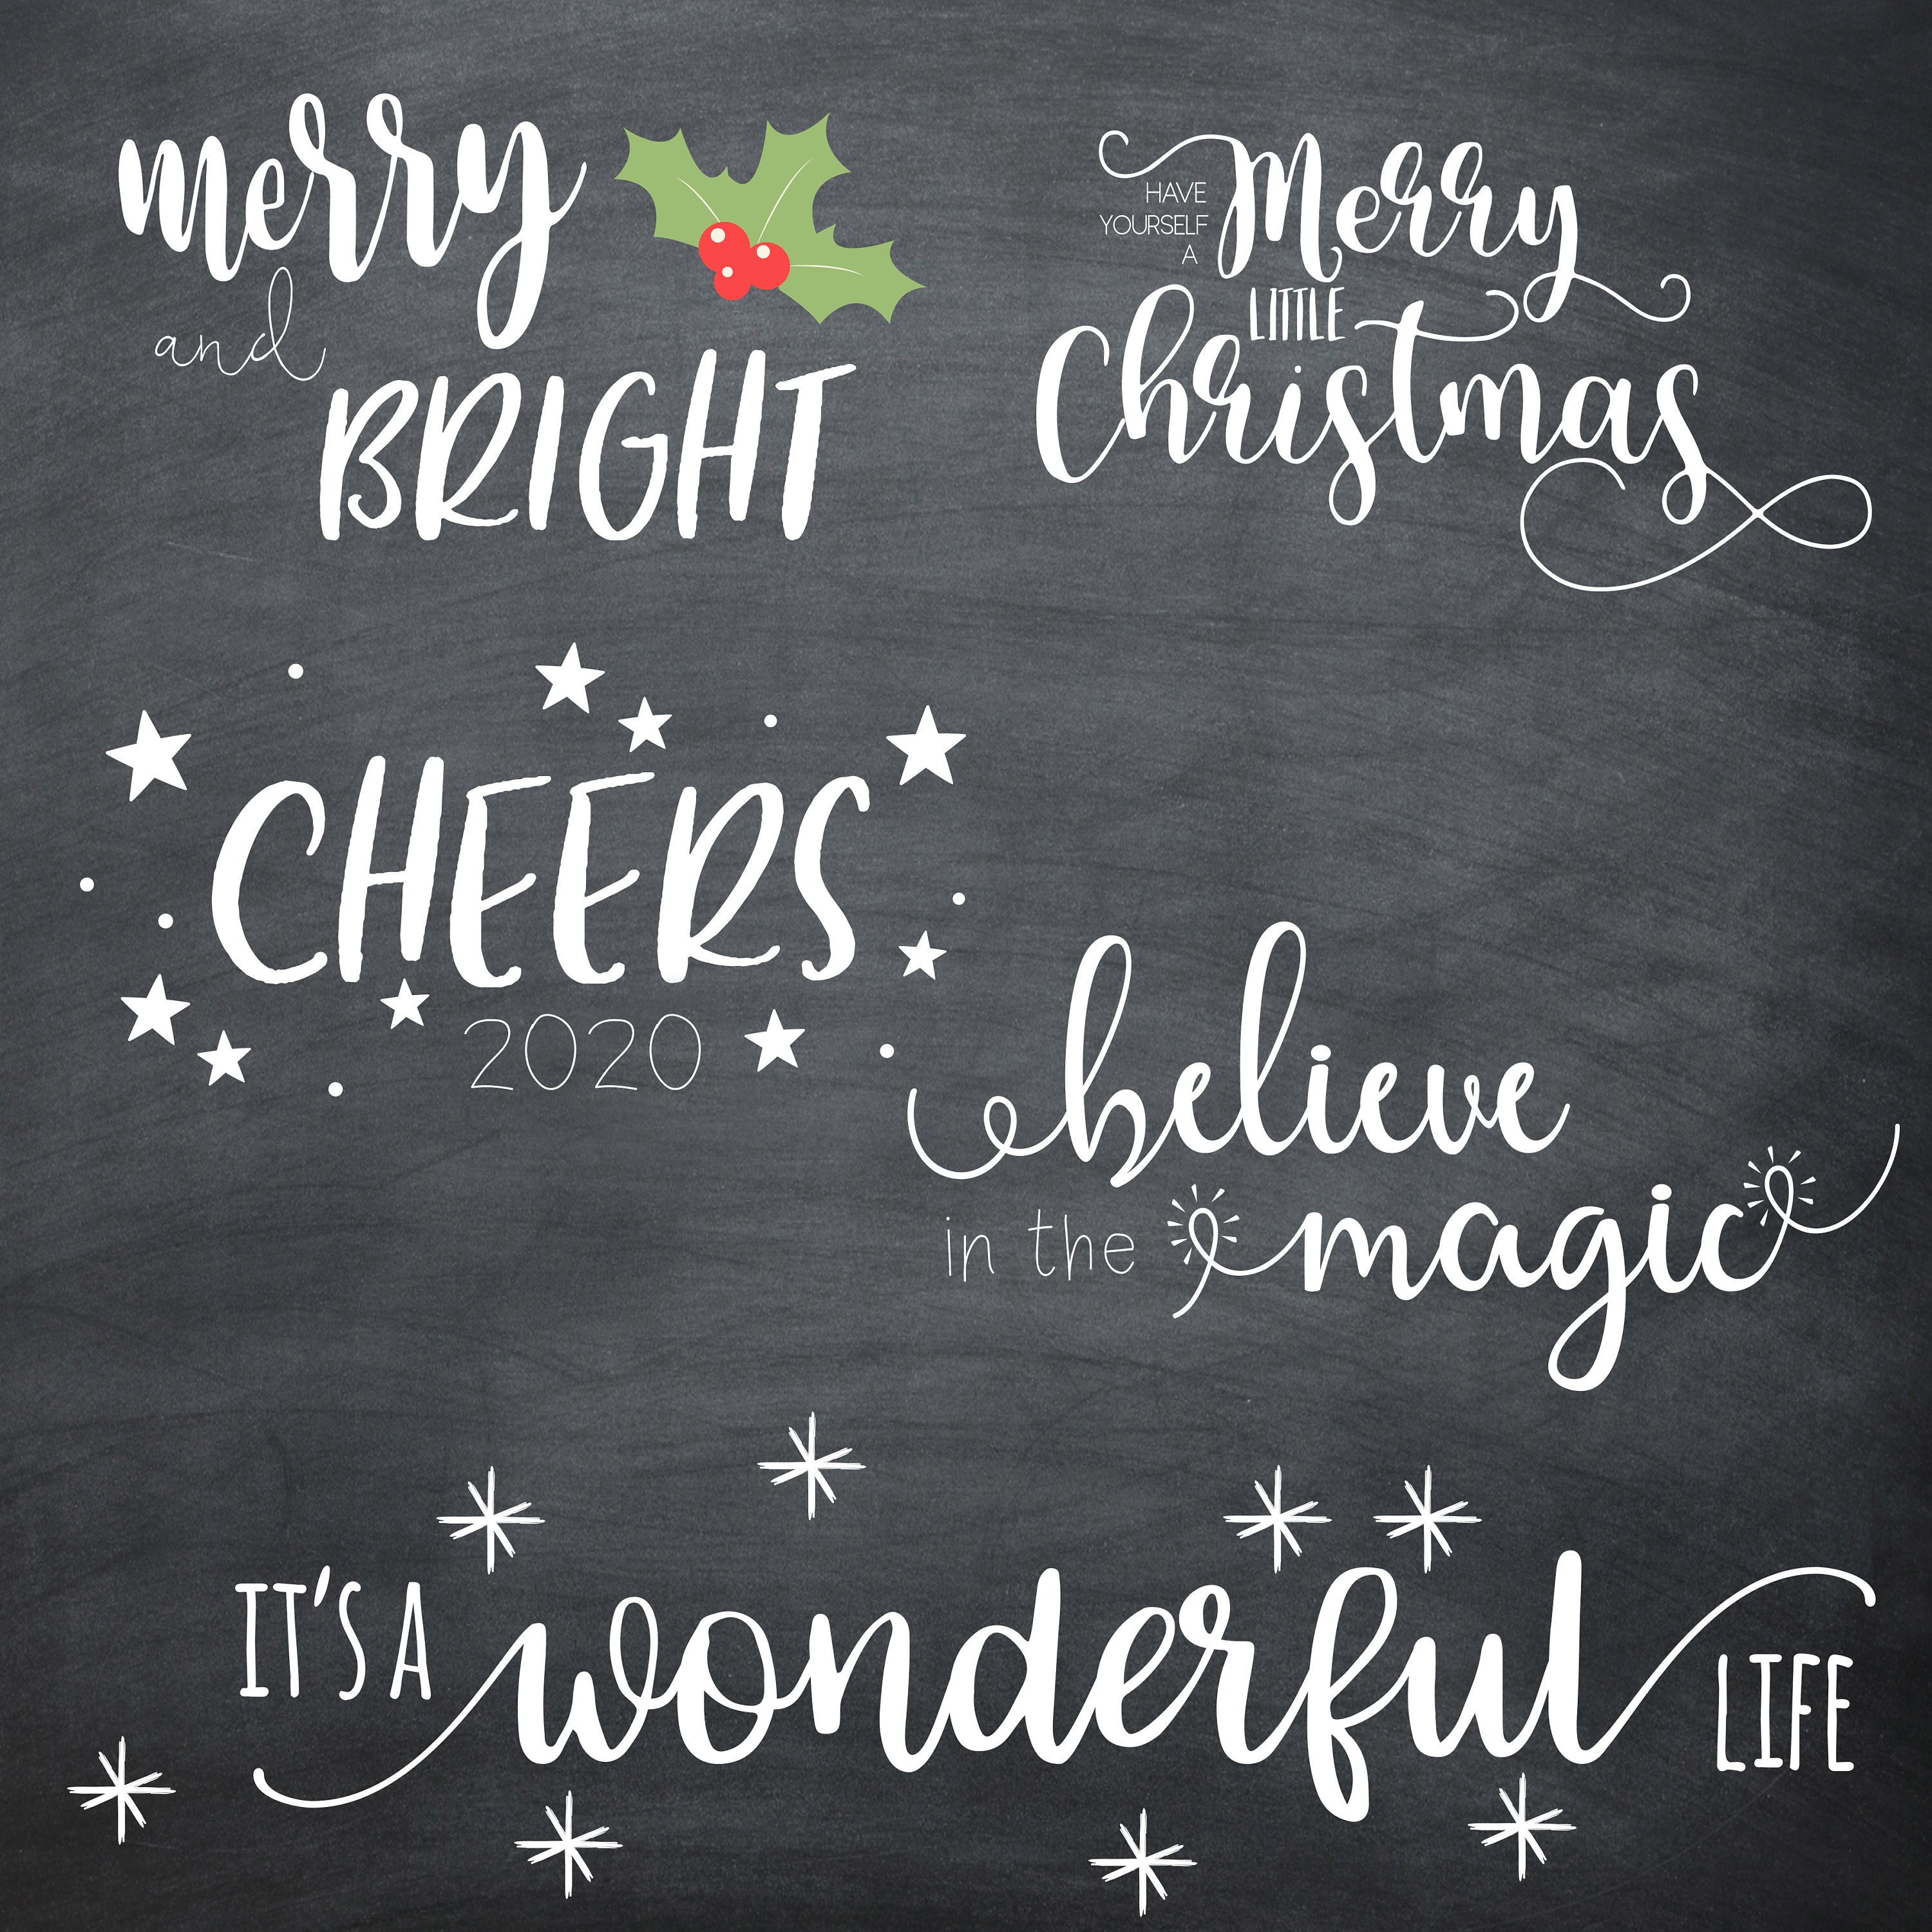 merry
and
BRIGHT
HAVE
YOURSELF
A
Merry
LITTLE
Christmas
CHEERS
2020
believe
in the magic
IT'S A wonderful LIFE